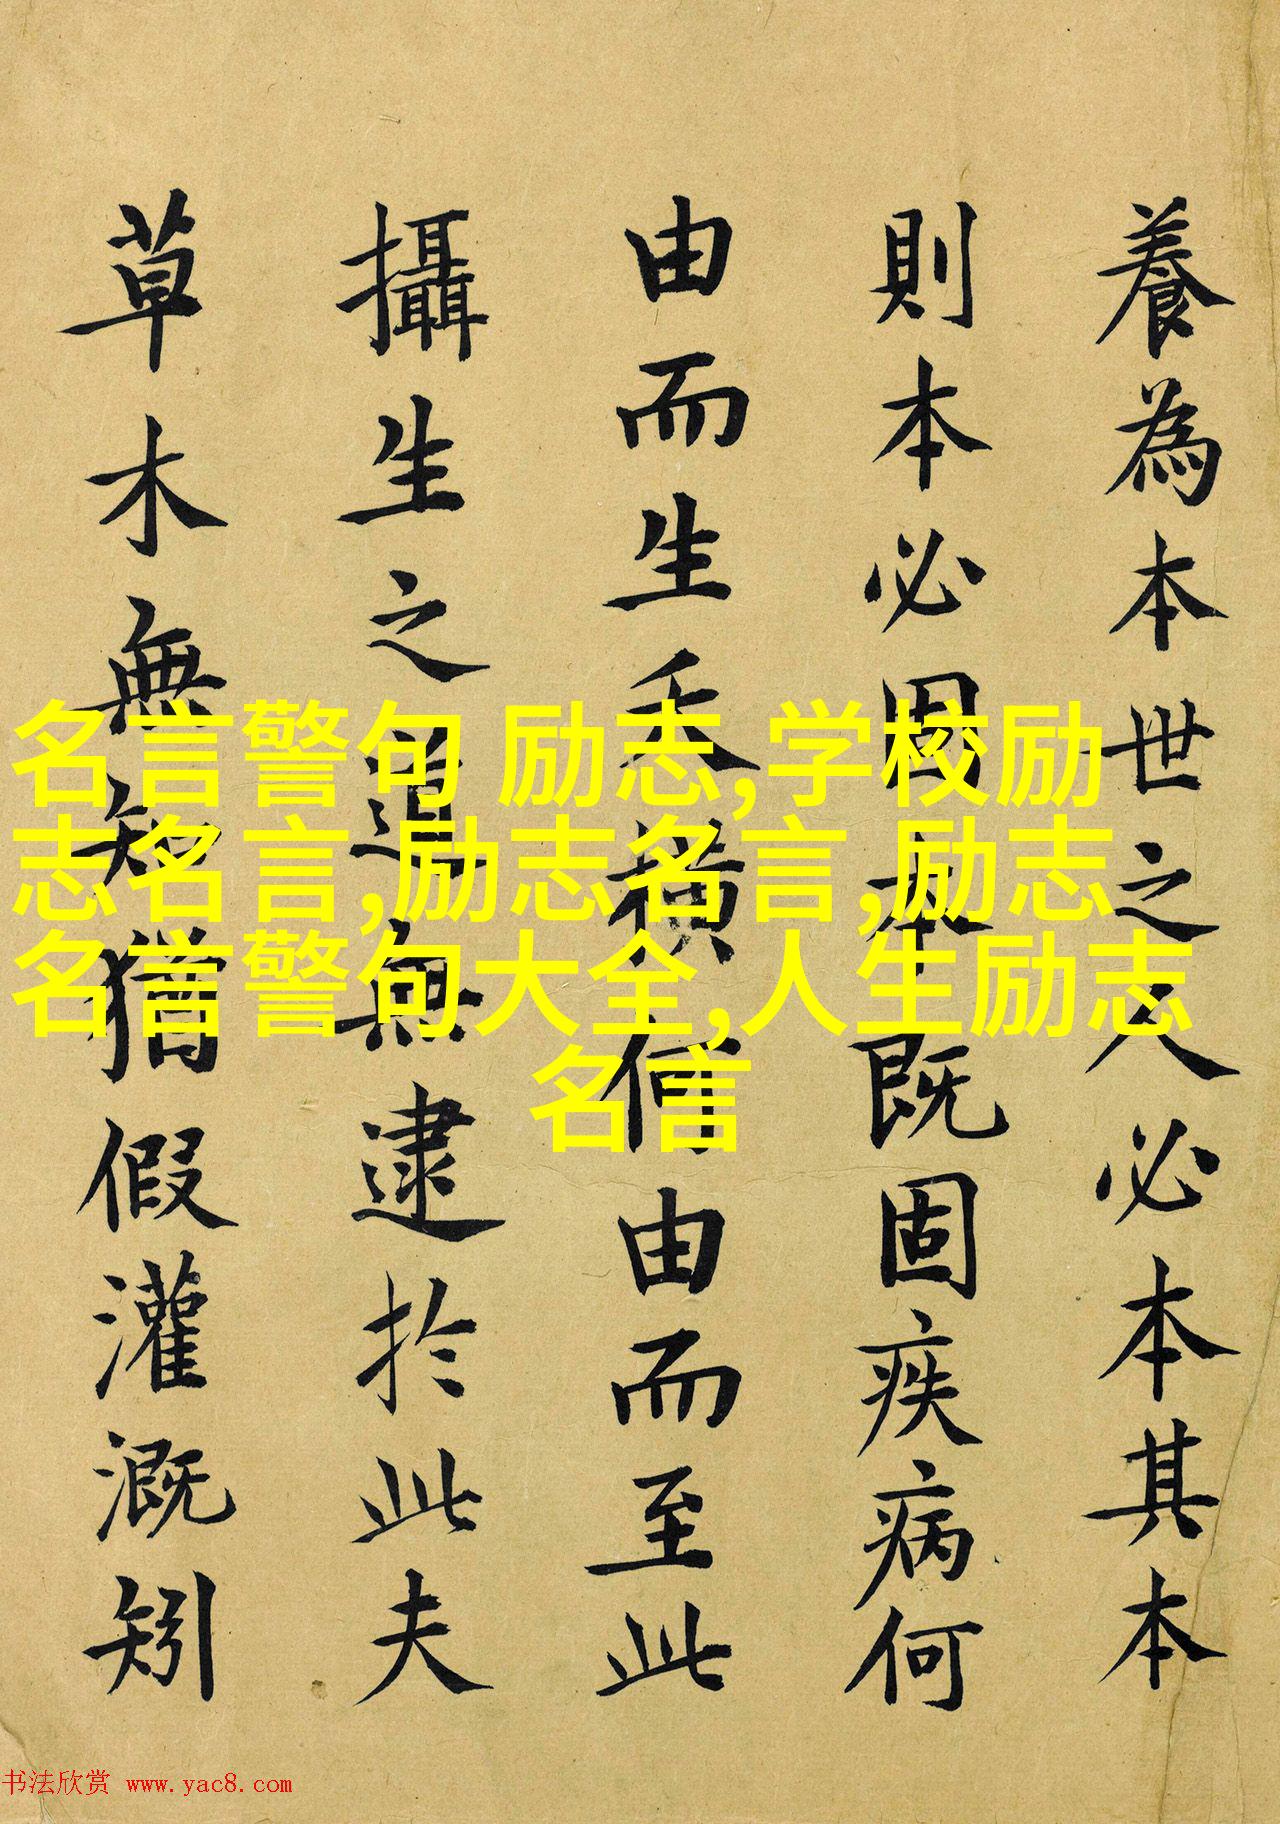 養為本世之人必本其本
則本必固本既固疾病何
由而生夭橫何由而至此
攝生之道無逮於此夫
草木無知猶假灌溉矧
名言警句 励志,学校励
志名言,励志名言,励志
名言警句大全,人生励志
名言
书法欣赏 www.yac8.com